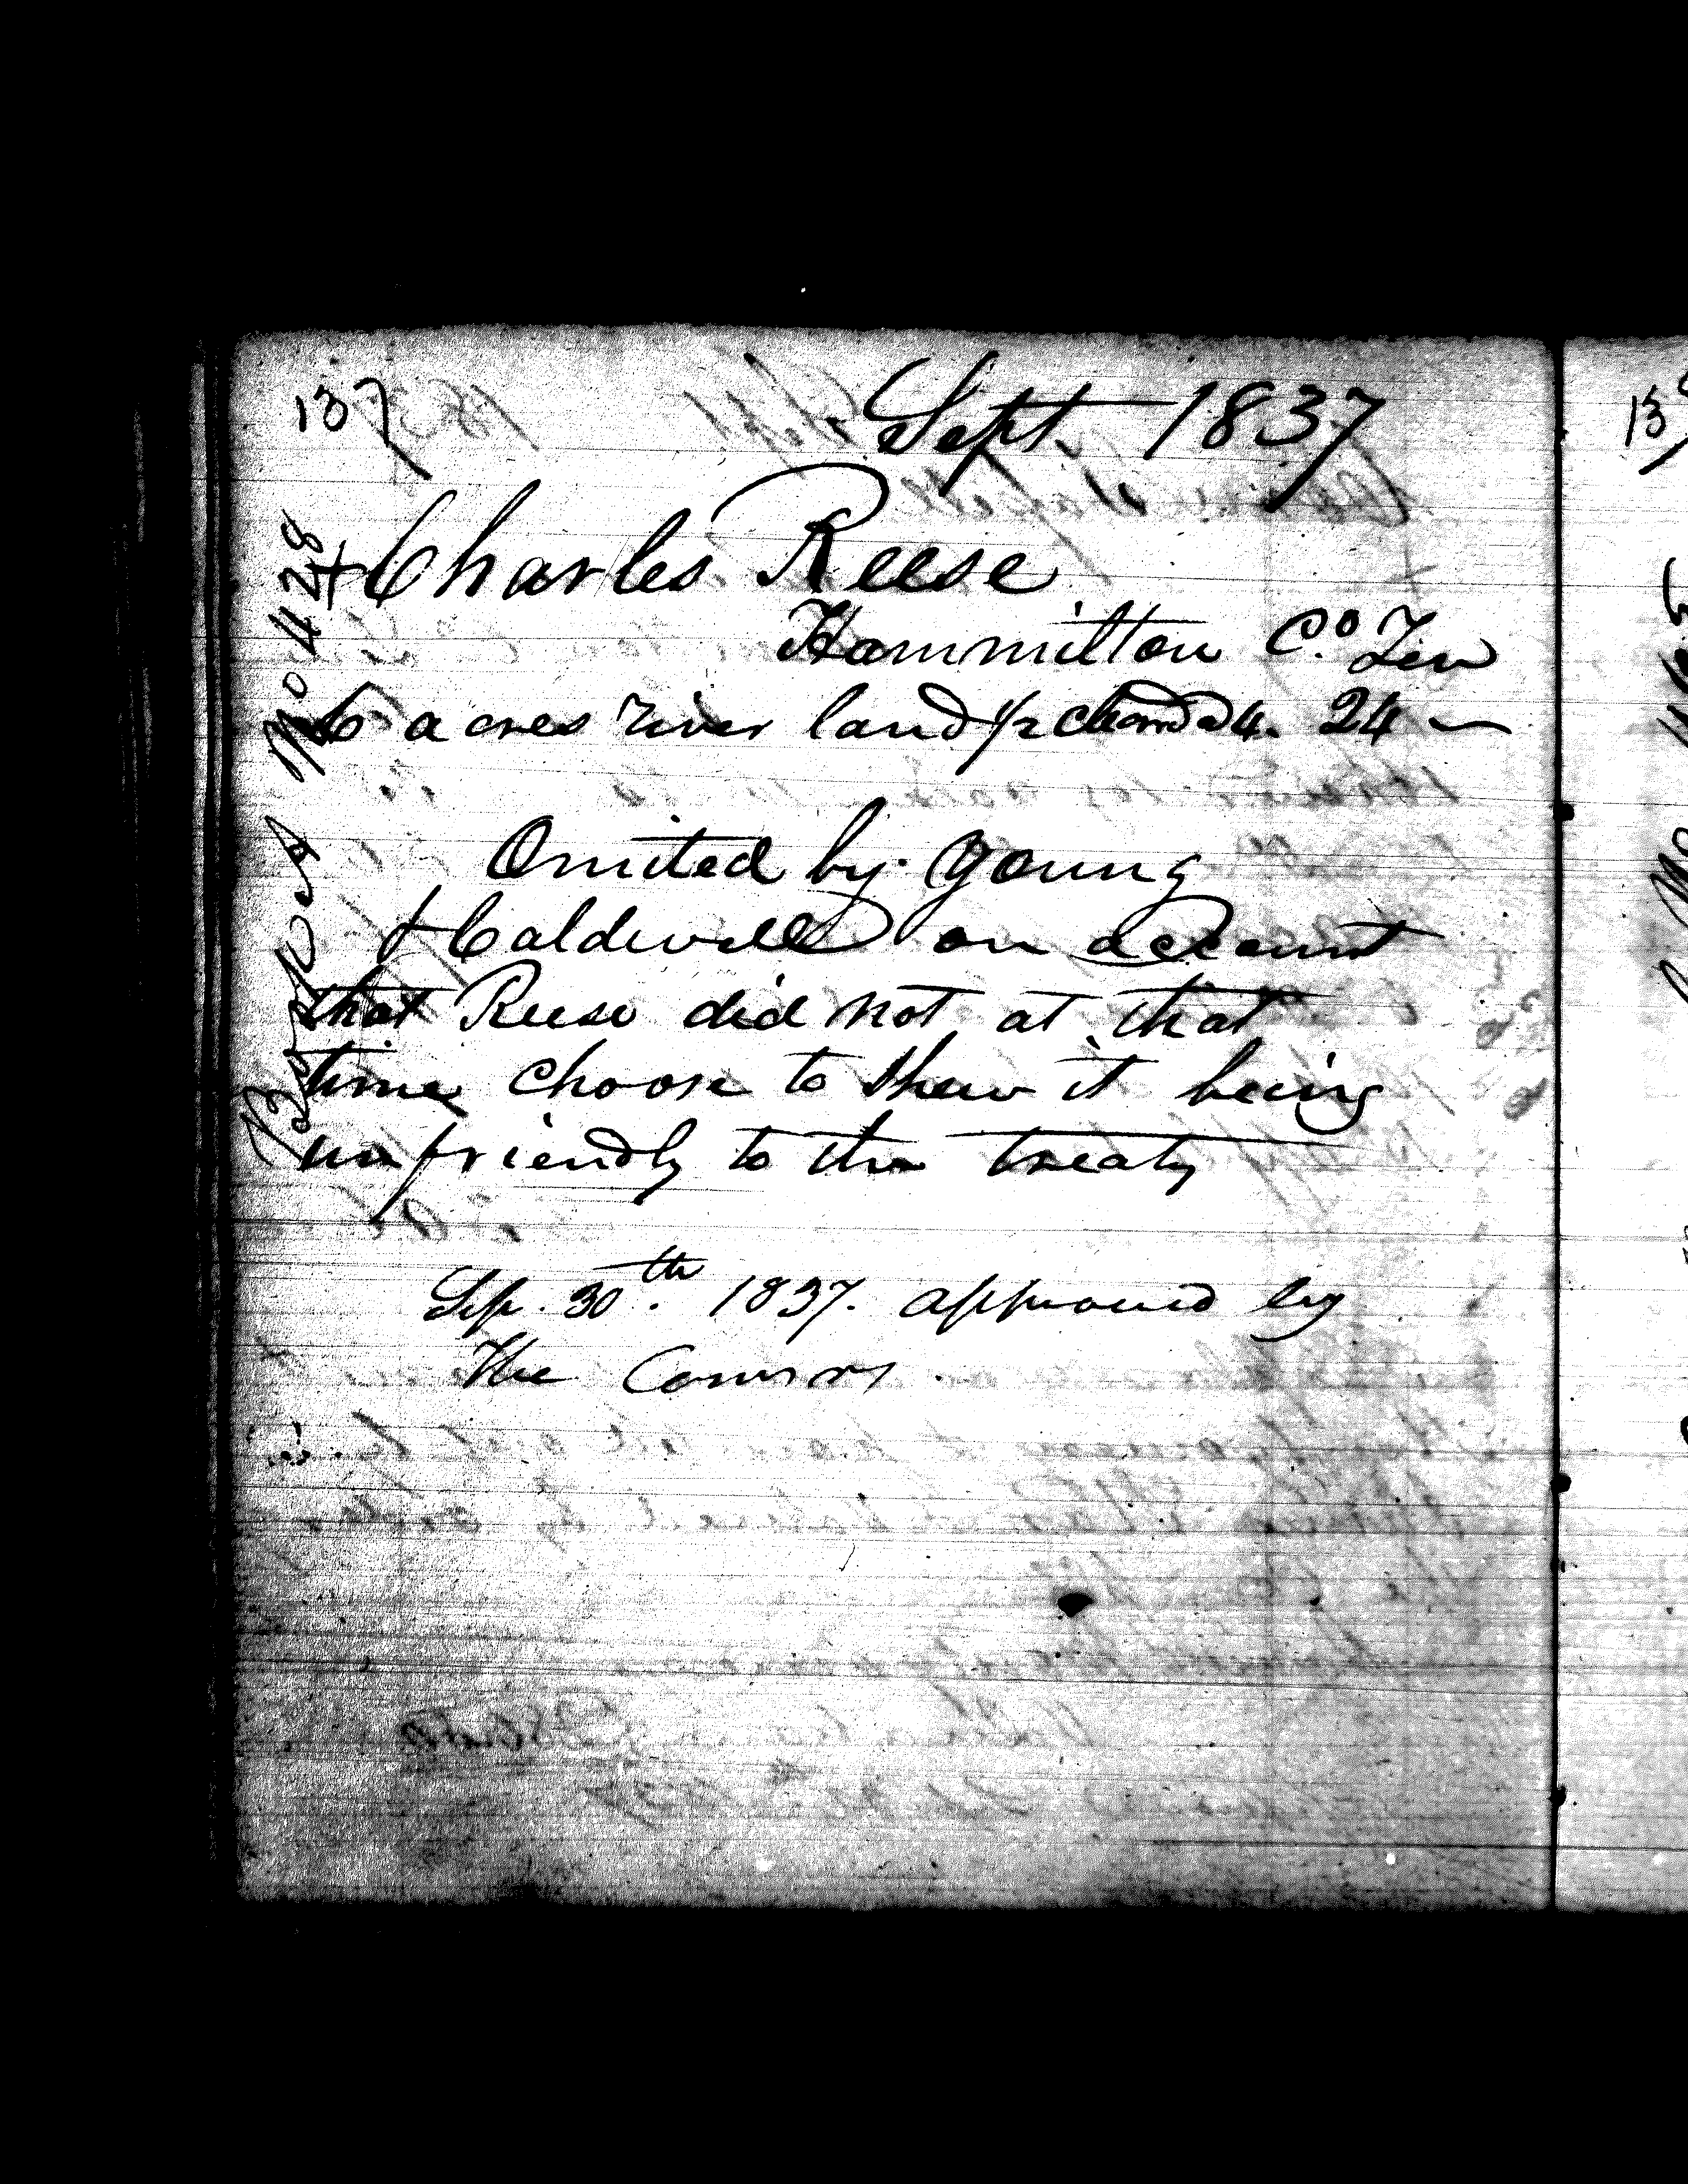 137
Sept 1837
+ Charles Reese
Hammilton Co. Ten
6 acres river land 1/2 cleared a 4. 24 —
Omited by Young
& Caldwell on account
that Reese did not at that
time choose to shew it being
unfriendly to the treaty
Sep. 30th. 1837. approved by
the Comsrs.
Book A No 428